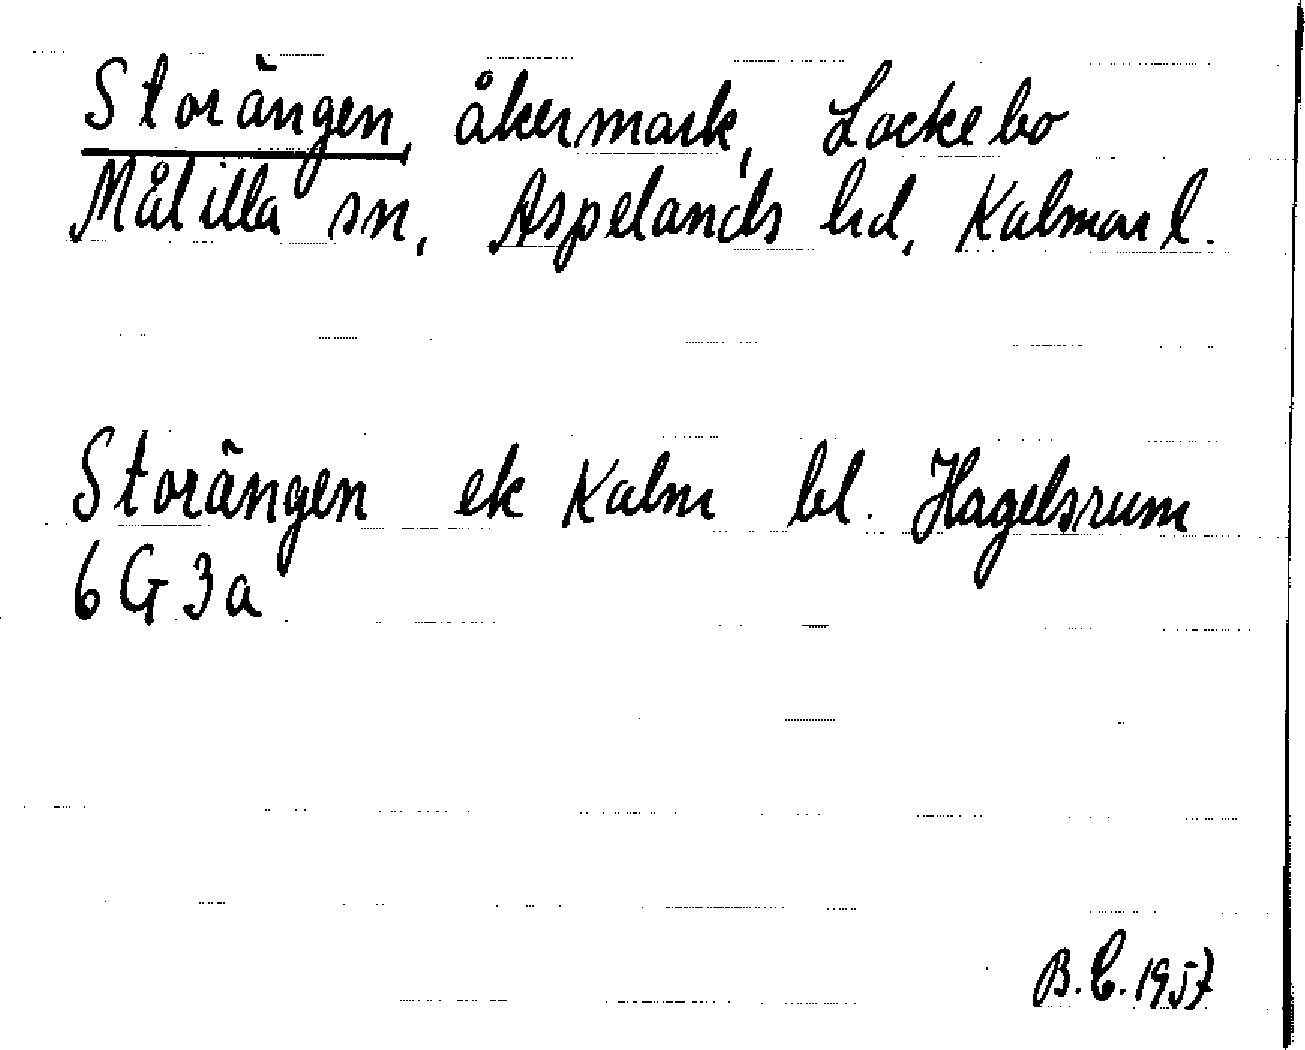 Storängen, åkermark, Lockebo
Målilla sn, Aspelands hd, Kalmar l.
Storängen ek Kalm bl. Hagelsrum
6 G 3 a
B. C. 1957